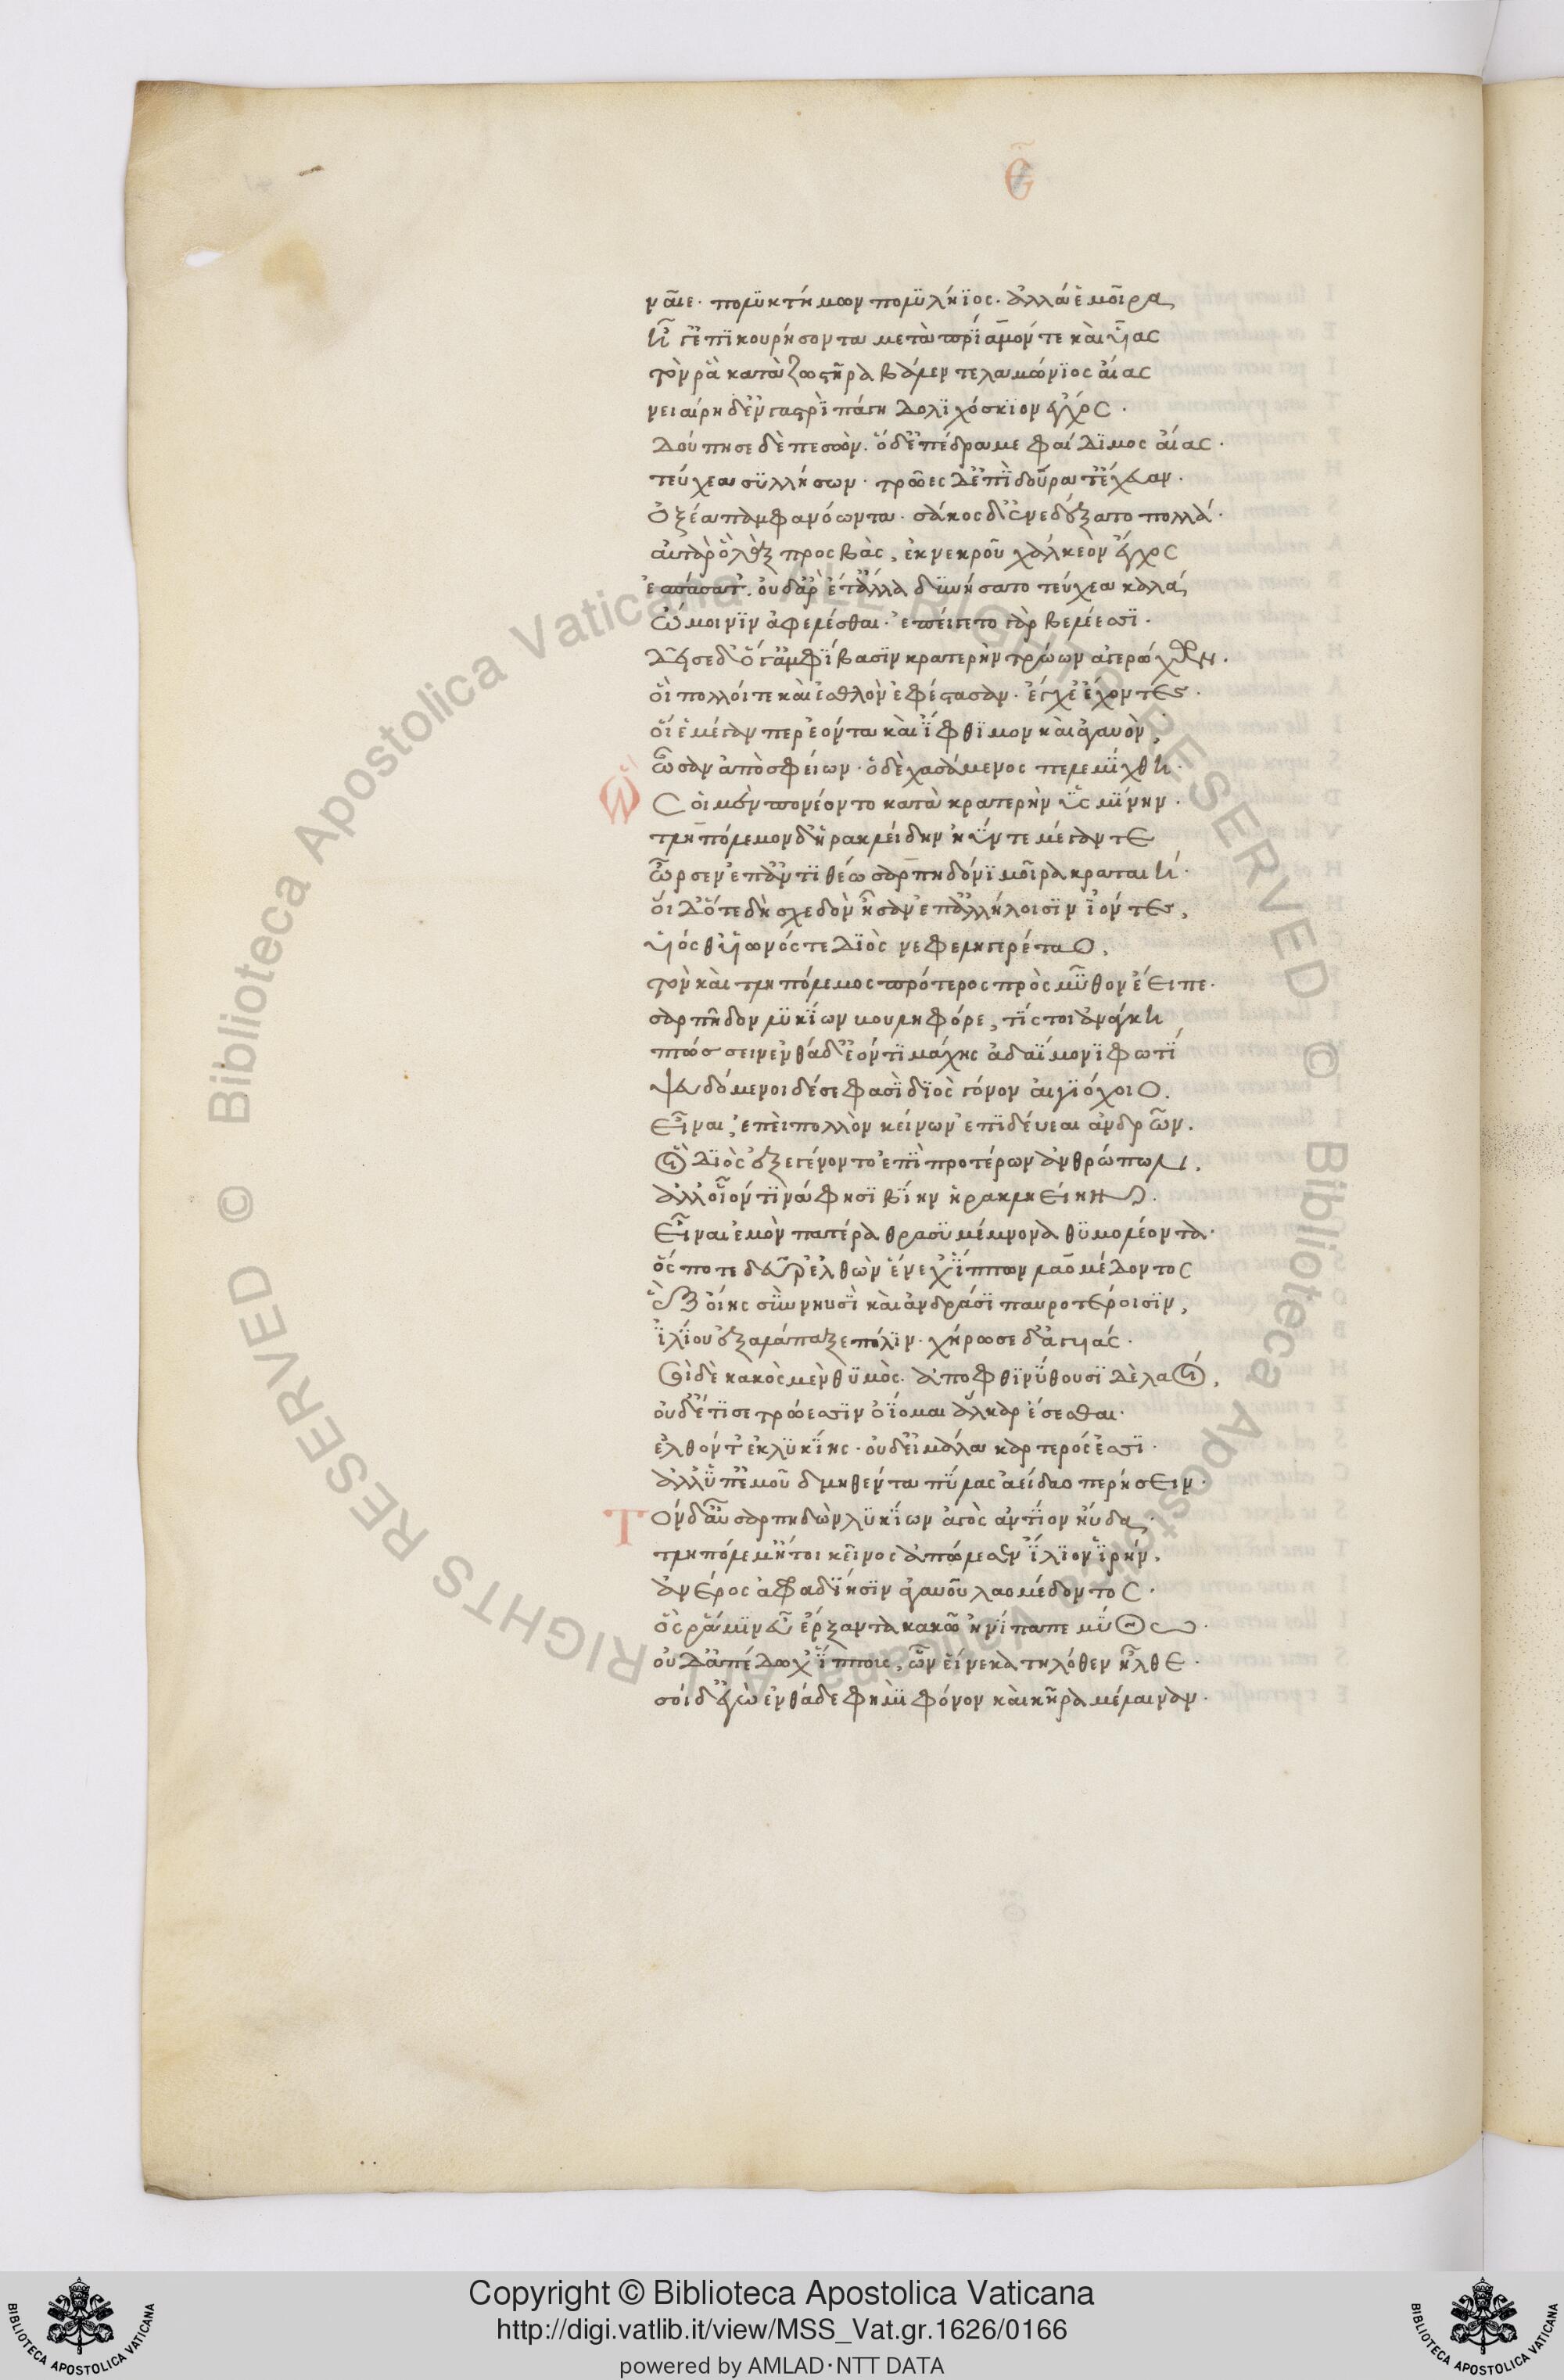 Ε
ναῖε· πολυκτήμων πολυλήϊος· ἀλλά ἑ μοῖρα
ἦγ' ἐπικουρήσοντα μετὰ πρίαμόν τε καὶ υἷας
τόν ῥα κατὰ ζωστῆρα βάλεν τελαμώνιος αἴας
νειαίρῃ δ' ἐν γαστρὶ πάγη δολιχόσκιον ἔγχος·
δούπησε δὲ πεσών· ὁ δ' ἐπέδραμε φαίδιμος αἴας·
τεύχεα συλλήσων· τρῶες δ' ἐπὶ δούρατ' ἔχευαν·
ὀξέα παμφανόωντα· σάκος δ' ἀνεδέξατο πολλά·
αὐτὰρ ὁ λὰξ προσβὰς, ἐκ νεκροῦ χάλκεον ἔγχος
ἐσπάσατ'· οὐδ' ἄρ' ἔτ' ἄλλα δυνήσατο τεύχεα καλά,
ὤμοιιν ἀφελέσθαι· ἐπείγετο γὰρ βελέεσσι·
δεῖσε δ' ὅγ' ἀμφίβασιν κρατερὴν τρώων ἀγερώχων·
οἳ πολλοί τε καὶ ἐσθλοὶ ἐφέστασαν· ἔγχε' ἔχοντες·
οἵ ἑ μέγαν περ ἐόντα καὶ ἴφθιμον καὶ ἀγαυὸν,
ὦσαν ἀπὸ σφείων· ὁ δὲ χασάμενος πελεμίχθη·
Ὣς οἱ μὲν πονέοντο κατὰ κρατερὴν ὑσμίνην·
τληπόλεμον δ' ἡρακλείδην ἠΰν τε μέγαν τε
ὦρσεν ἐπ' ἀντιθέῳ σαρπηδόνι μοῖρα κραταιή·
οἱ δ' ὅτε δὴ σχεδὸν ἦσαν ἐπ' ἀλλήλοισιν ἰόντες,
υἱός θ' υἱωνός τε διὸς νεφεληγερέταο,
τὸν καὶ τληπόλεμος πρότερος πρὸς μῦθον ἔειπε·
σαρπῆδον λυκίων βουληφόρε, τίς τοι ἀνάγκη
πτώσσειν ἐνθάδ' ἐόντι μάχης ἀδαήμονι φωτί
ψευδόμενοι δέ σε φασὶ διὸς γόνον αἰγιόχοιο.
εἶναι, ἐπεὶ πολλὸν κείνων ἐπιδεύεαι ἀνδρῶν.
οἳ διὸς ἐξεγένοντο ἐπὶ προτέρων ἀνθρώπων,
ἀλλ' οἷόν τινά φησι βίην ἡρακληείην.
εἶναι ἐμὸν πατέρα θρασυμέμνονα θυμολέοντα·
ὅς ποτε δεῦρ' ἐλθὼν ἕνεχ' ἵππων λαομέδοντος
ἓξ οἴης σὺν νηυσὶ καὶ ἀνδράσι παυροτέροισιν,
ἰλίου ἐξαλάπαξε πόλιν· χήρωσε δ' ἀγυιάς·
σοὶ δὲ κακὸς μὲν θυμὸς· ἀποφθινύθουσι δὲ λαοί,
οὐδέ τί σε τρώεσσιν ὀΐομαι ἄλκαρ ἔσεσθαι·
ἐλθόντ' ἐκ λυκίης· οὐδ' εἰ μάλα καρτερός ἐσσι·
ἀλλ' ὑπ' ἐμοῦ δμηθέντα πύλας ἀΐδαο περήσειν·
Τὸν δ' αὖ σαρπηδὼν λυκίων ἀγὸς ἀντίον ηὔδα·
τληπόλεμ' ἤτοι κεῖνος ἀπώλεσεν ἴλιον ἱρήν,
ἀνέρος ἀφραδίῃσιν ἀγαυοῦ λαομέδοντος·
ὅς ῥά μιν εὖ ἔρξαντα κακῷ ἠνίπαπε μύθῳ·
οὐδ' ἀπέδωχ' ἵππους, ὧν εἵνεκα τηλόθεν ἦλθε·
σοὶ δ' ἐγὼ ἐνθάδε φημὶ φόνον καὶ κῆρα μέλαιναν·
© Biblioteca Apostolica Vaticana ALL RIGHTS RESERVED © Biblioteca Apostolica Vaticana ALL RIGHTS RESERVED
Copyright © Biblioteca Apostolica Vaticana
http://digi.vatlib.it/view/MSS_Vat.gr.1626/0166
powered by AMLAD·NTT DATA
BIBLIOTECA APOSTOLICA VATICANA
BIBLIOTECA APOSTOLICA VATICANA